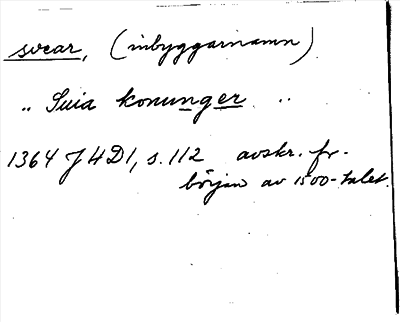 svear, (inbyggarnamn)
" Suia konunger "
1364 J4D1, s. 112 avskr. fr.
början av 1500-talet.